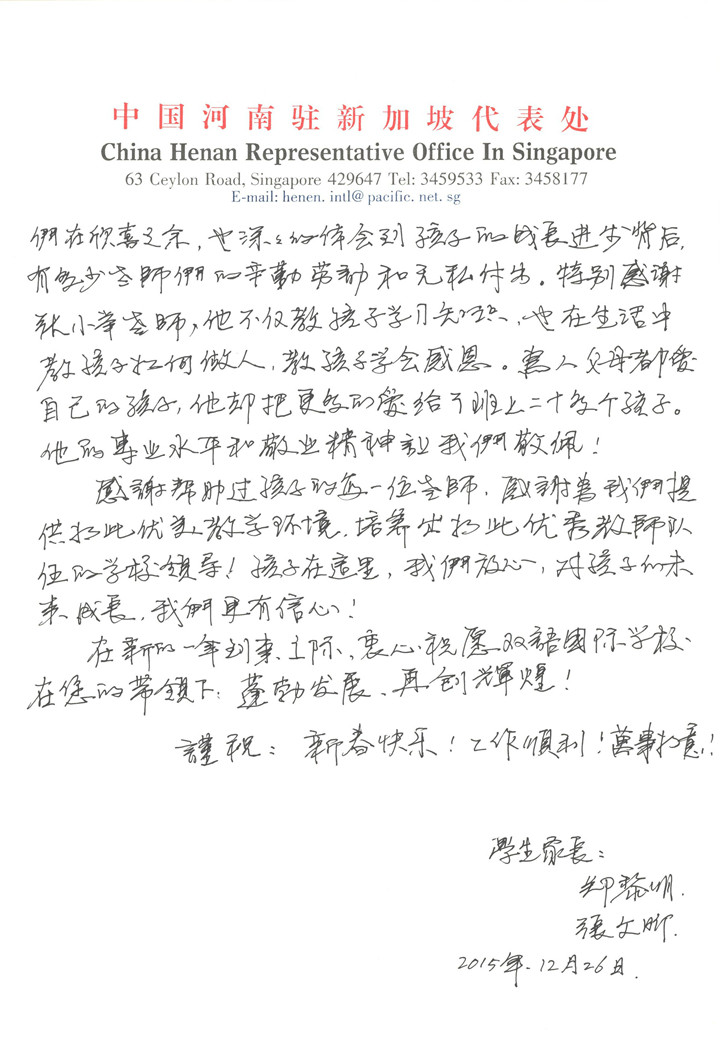 中国河南驻新加坡代表处
China Henan Representative Office In Singapore
63 Ceylon Road, Singapore 429647 Tel: 3459533 Fax: 3458177
E-mail: henen. intl@ pacific. net. sg
們在欣喜之余，也深深的体会到孩子的成長进步背后，
有多少老師們的辛勤劳動和无私付出。特别感谢
张小苹老師，他不仅教孩子学习知识，也在生活中
教孩子如何做人，教孩子学会感恩。為人父母者都爱
自己的孩子，他却把更多的愛给了班上二十多个孩子。
他的專业水平和敬业精神让我們敬佩！
感謝帮助过孩子的每一位老師，感謝為我們提
供如此优美教学环境，培养出如此优秀教師队
伍的学校領导！孩子在這里，我們放心，对孩子的未
来成長，我們更有信心！
在新的一年到来之际、衷心祝愿双語國际学校
在您的带領下：蓬勃发展、再创輝煌！
謹祝：新春快乐！工作順利！萬事如意！
學生家長：
郑黎明.
張文
2015年.12月26日.